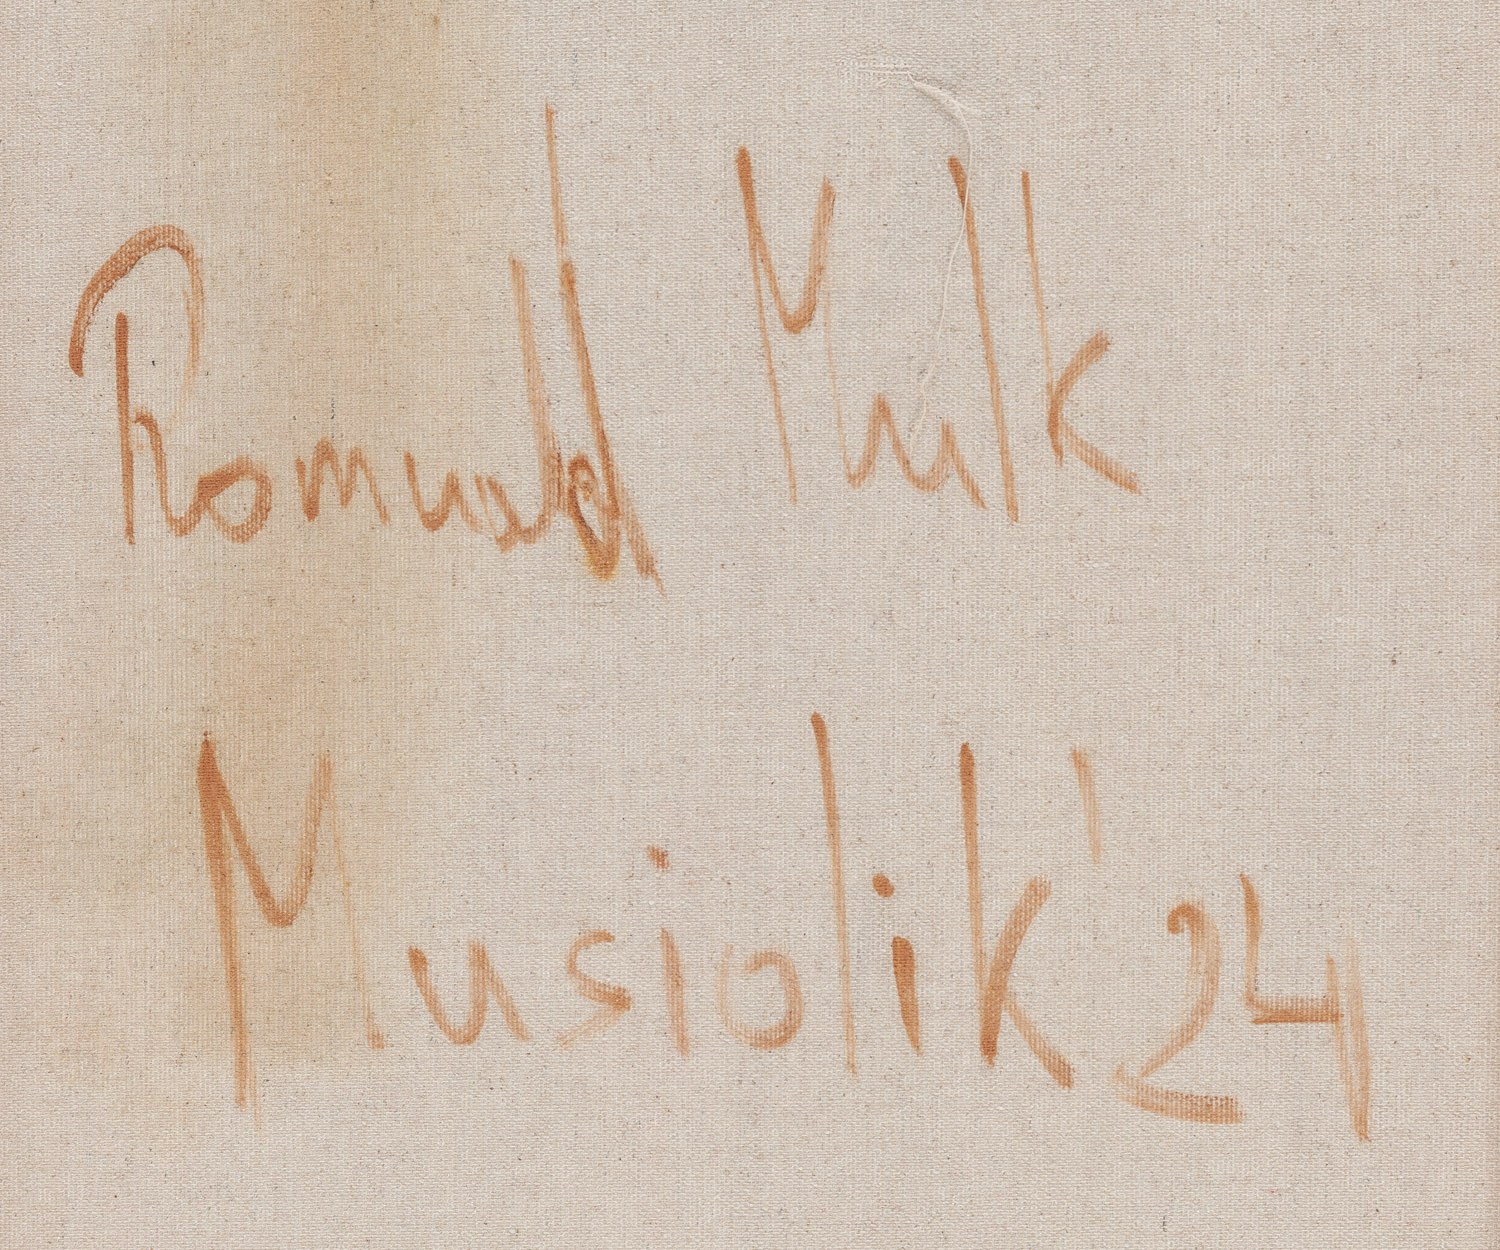 Romuald Mulk
Musiolik'24